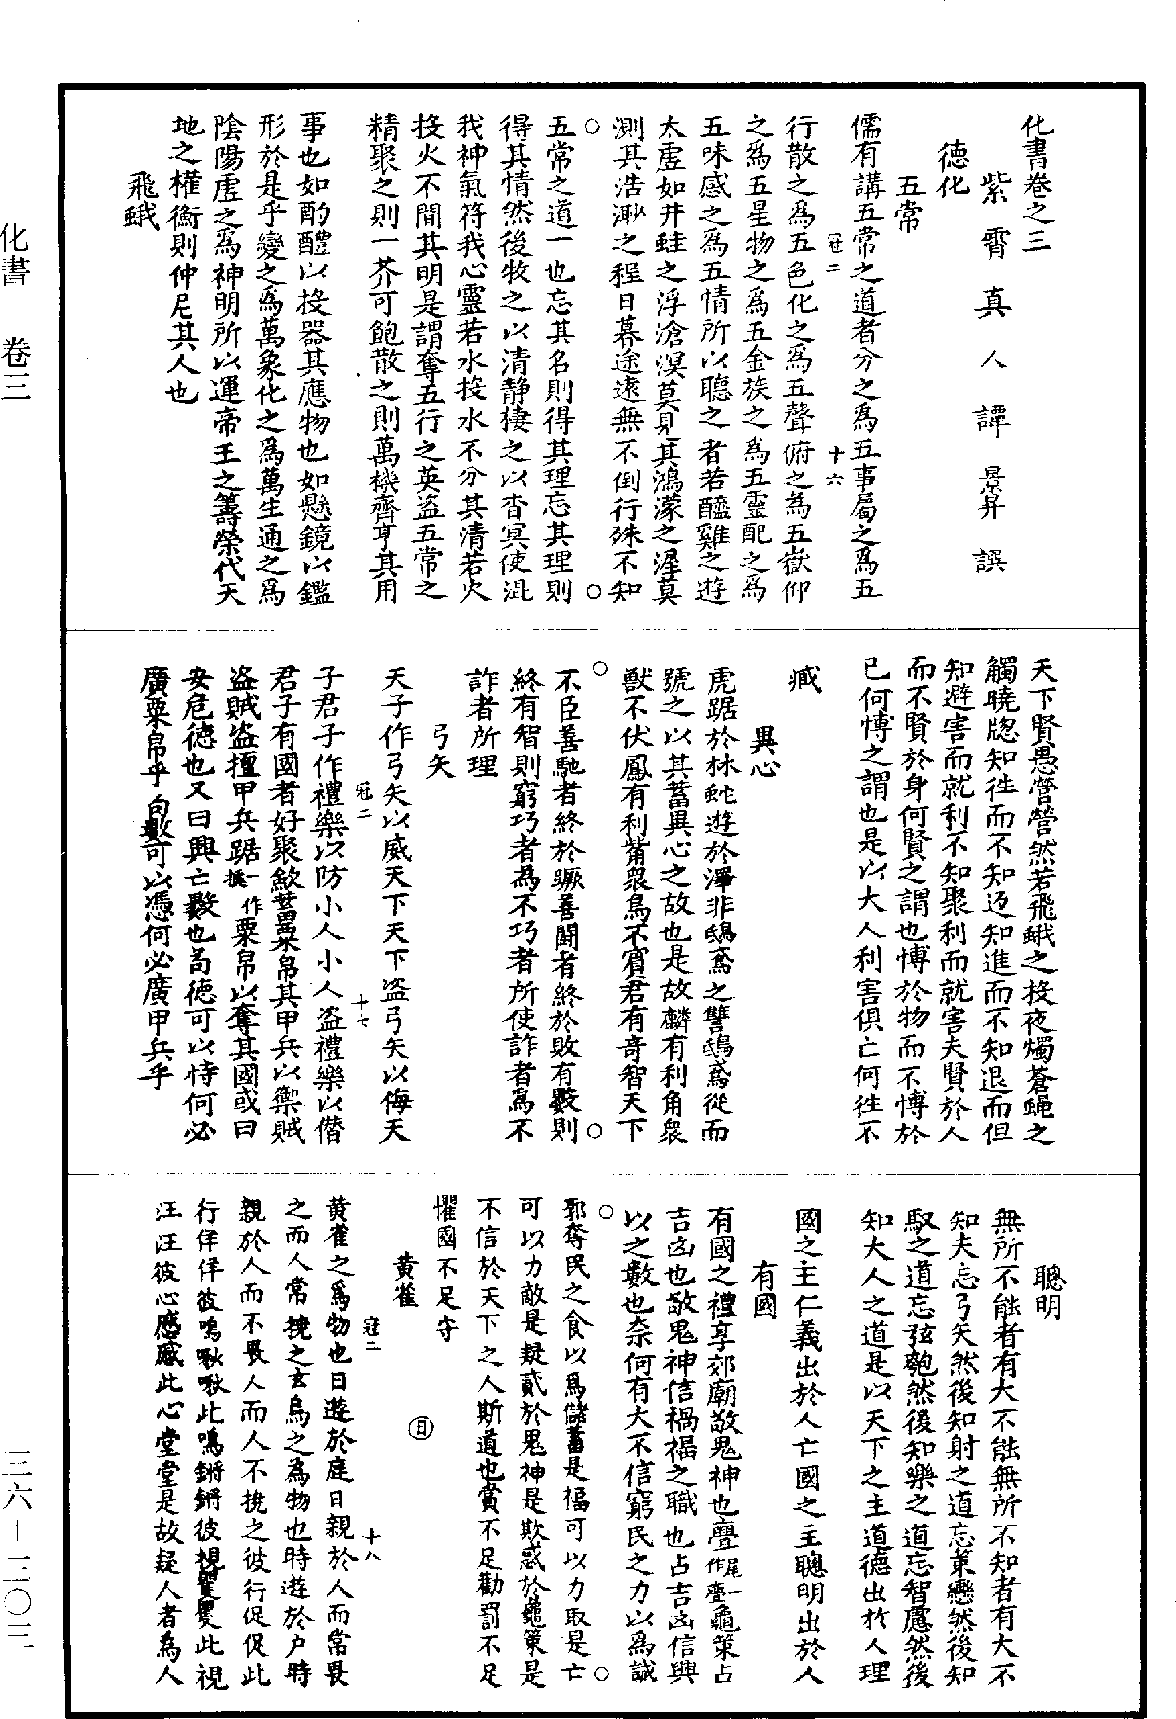 化書卷之三
紫霄真人譚景昇譔
德化
五常
儒有講五常之道者分之爲五事屬之爲五
行散之爲五色化之爲五聲俯之爲五嶽仰
之爲五星物之爲五金族之爲五靈配之爲
五味感之爲五情所以聽之者若醯雞之遊
太虛如井蛙之浮滄溟莫見其鴻濛之涯莫
測其浩渺之程日暮途遠無不倒行殊不知
五常之道一也忘其名則得其理忘其理則
得其情然後牧之以清静棲之以杳冥使混
我神氣符我心靈若水投水不分其清若火
投火不間其明是謂奪五行之英盜五常之
精聚之則一芥可飽散之則萬機齊亨其用
事也如酌醴以投器其應物也如懸鏡以鑑
形於是乎變之爲萬象化之爲萬生通之爲
陰陽虛之爲神明所以運帝王之籌榮代天
地之權衡則仲尼其人也
飛蛾
天下賢愚營營然若飛蛾之投夜燭蒼蠅之
觸曉牕知往而不知返知進而不知退而但
知避害而就利不知聚利而就害夫賢於人
而不賢於身何賢之謂也博於物而不博於
已何博之謂也是以大人利害俱亡何往不
臧
異心
虎踞於林蛇遊於澤非鴟鳶之讐鴟鳶從而
號之以其蓄異心之故也是故麟有利角衆
獸不伏鳳有利觜衆鳥不賓君有奇智天下
不臣善馳者終於蹶善鬪者終於敗有數則
終有智則窮巧者為不巧者所使詐者爲不
詐者所理
弓矢
天子作弓矢以威天下天下盜弓矢以侮天
子君子作禮樂以防小人小人盜禮樂以僭
君子有國者好聚歛蓄粟帛具甲兵以禦賊
盜賊盜擅甲兵踞一作據粟帛以奪其國或曰
安危德也又曰興亡數也苟德可以恃何必
廣粟帛乎苟數可以憑何必廣甲兵乎
聰明
無所不能者有大不能無所不知者有大不
知夫忘弓矢然後知射之道忘策轡然後知
馭之道忘弦匏然後知樂之道忘智慮然後
知大人之道是以天下之主道德出於人理
國之主仁義出於人亡國之主聰明出於人
有國
有國之禮享郊廟敬鬼神也亹尾一作亹龜策占
吉凶也敬鬼神信禍福之職也占吉凶信興
以之數也奈何有大不信窮民之力以爲誠
郭奪民之食以爲儲蓄是福可以力取是亡
可以力敵是疑貳於鬼神是欺惑於龜策是
不信於天下之人斯道也賞不足勸罰不足
懼國不足守
黄雀
黄雀之爲物也日遊於庭日親於人而常畏
之而人常撓之玄鳥之為物也時遊於户時
親於人而不畏人而人不撓之彼行促促此
行佯佯彼鳴啾啾此鳴鏘鏘彼視矍矍此視
汪汪彼心慼慼此心堂堂是故疑人者爲人
冠二
十六
冠二
十七
冠二
十八
化書 卷三
三六－三〇三